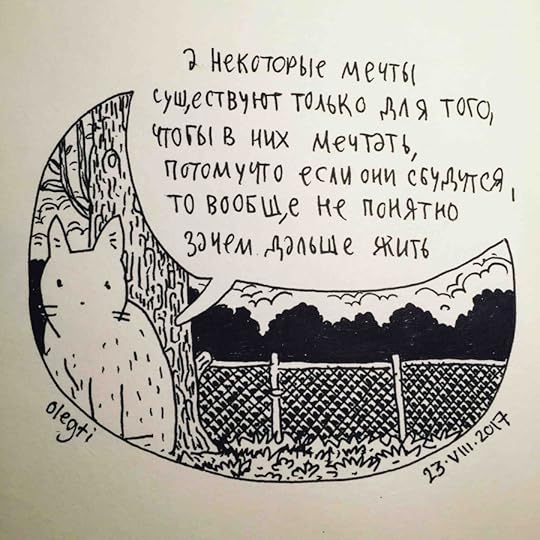 а некоторые мечты
существуют только для того,
чтобы в них мечтать,
потому что если они сбудутся,
то вообще не понятно
зачем дальше жить
olegti
23·VIII·2017